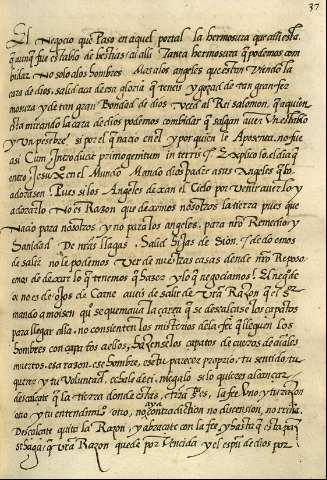 37
El Negocio que Paso en aquel portal la hermosura que alli esta.
q aunq fue establo de bestias ai alli Tanta hermosura q podemos com
bidar No solo alos hombres Mas alos angeles que esten Viendo la
cara de dios. salid aca de essa gloria q teneis y gozad de tan gran fer
mosura y de tan gran Bondad de dios Veed al Rei salomon, q aquien
esta mirando la cara de dios podemos combidar q salgan a uer Vn establo
y Vn pesebre si por el q nacio en el y por quien le Aposenta. no fue
asi Cum Introducit primogenitum in terris
entro Jesu X en el Mundo Mando dios padre a sus Angeles q lo
adorasen. Pues si los Angeles dexan el Cielo por Venir a uerlo y
adorarlo No es Razon que dexemos nosotros la tierra pues que
Nacio para nosotros y no para los angeles, para nro Remedio y
Sanidad De nras llagas. Salid hijas de Sion. de do emos
de salir no le podemos Ver de nuestras casas dende nro Reposo
emos de dexar lo q tenemos q hazer y lo q negociamos? El neg de
oi no es de ojos de Carne aueis de salir de Vra Razon q el q
mando a moisen qui se quemaua la çarça q se descalçase los çapatos
para llegar ella. no consienten los misterios dela fee q lleguen los
hombres con çapatos a ellos, hazense los çapatos de cueros de aiales
muertos. esa razon. ese hombre, ese tu parecer proprio. tu sentido, tu
querer y tu Voluntad. echalo de ti, niegalo si lo quieres alcançar.
descalçate q la tierra donde estas, la fee Vno y tu razon
otro y tu entendimio otro, no aya contradiction no discension, no rrina.
Descalçate quita la Razon, y abraçate con la fee, y hasta q esta
q Vra Razon quede por Vencida y el espu de dios por